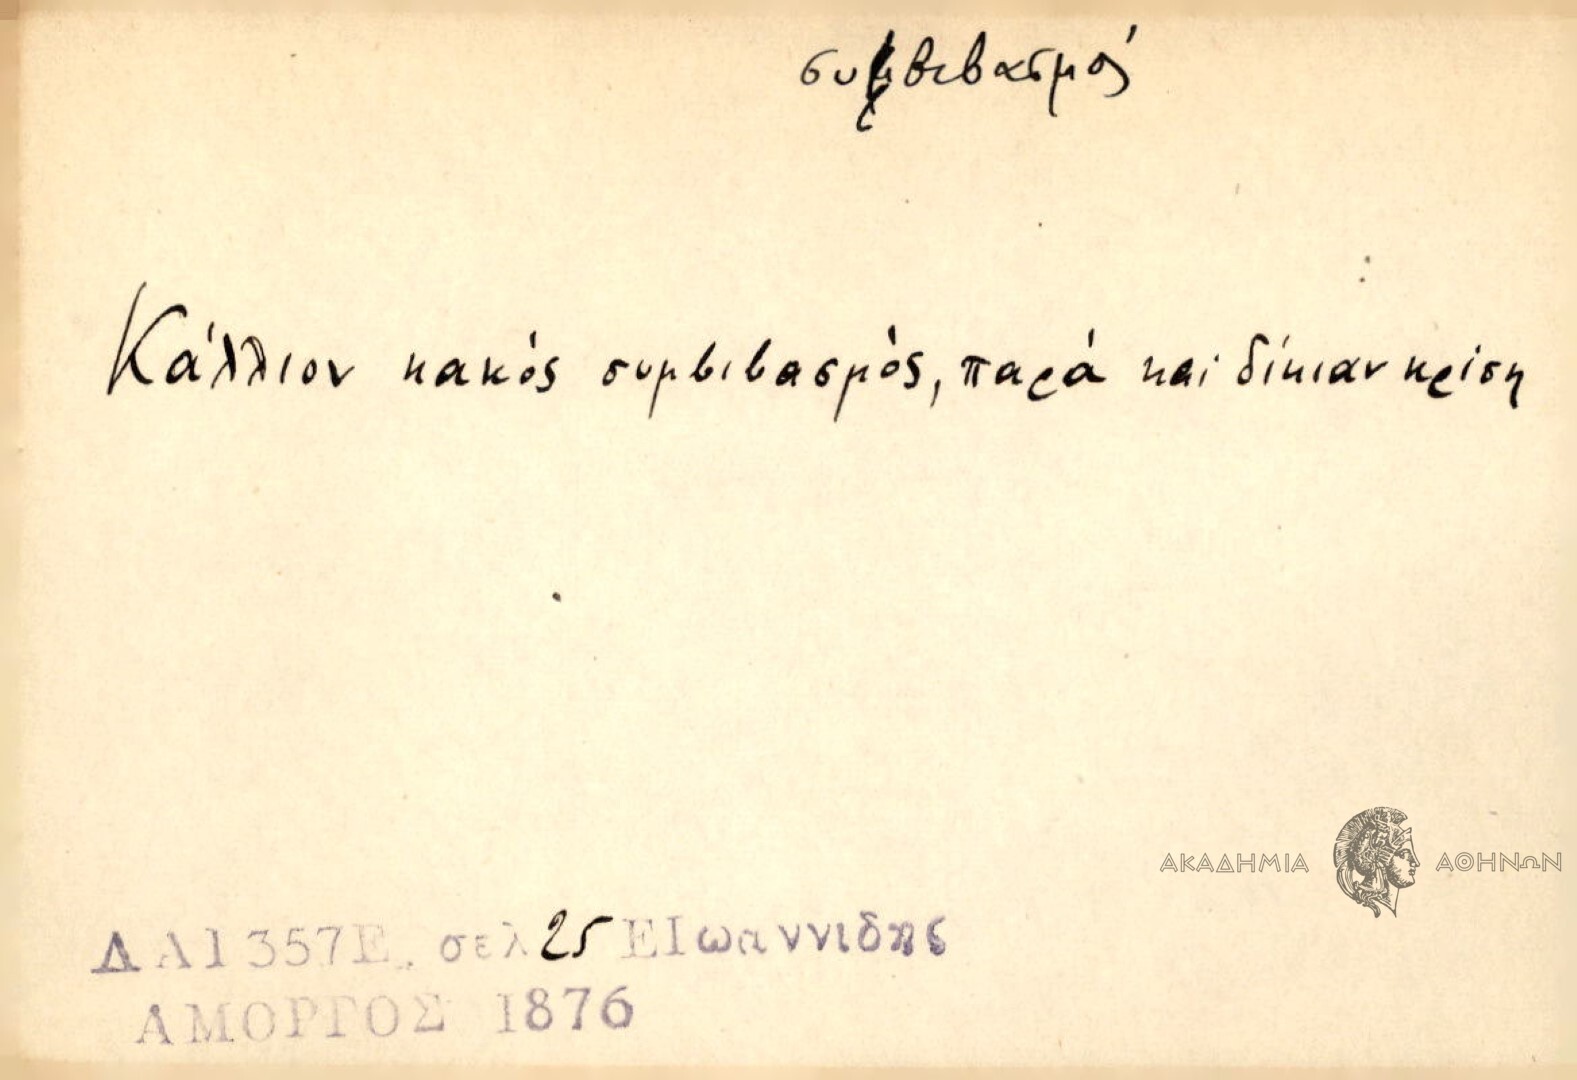 συμβιβασμός
Κάλλιον κακός συμβιβασμός, παρά και δίκιαν κρίση
ΑΚΑΔΗΜΙΑ ΑΘΗΝΩΝ
ΔΑ1357Ε, σελ 25 ΕΙωαννιδης
ΑΜΟΡΓΟΣ 1876